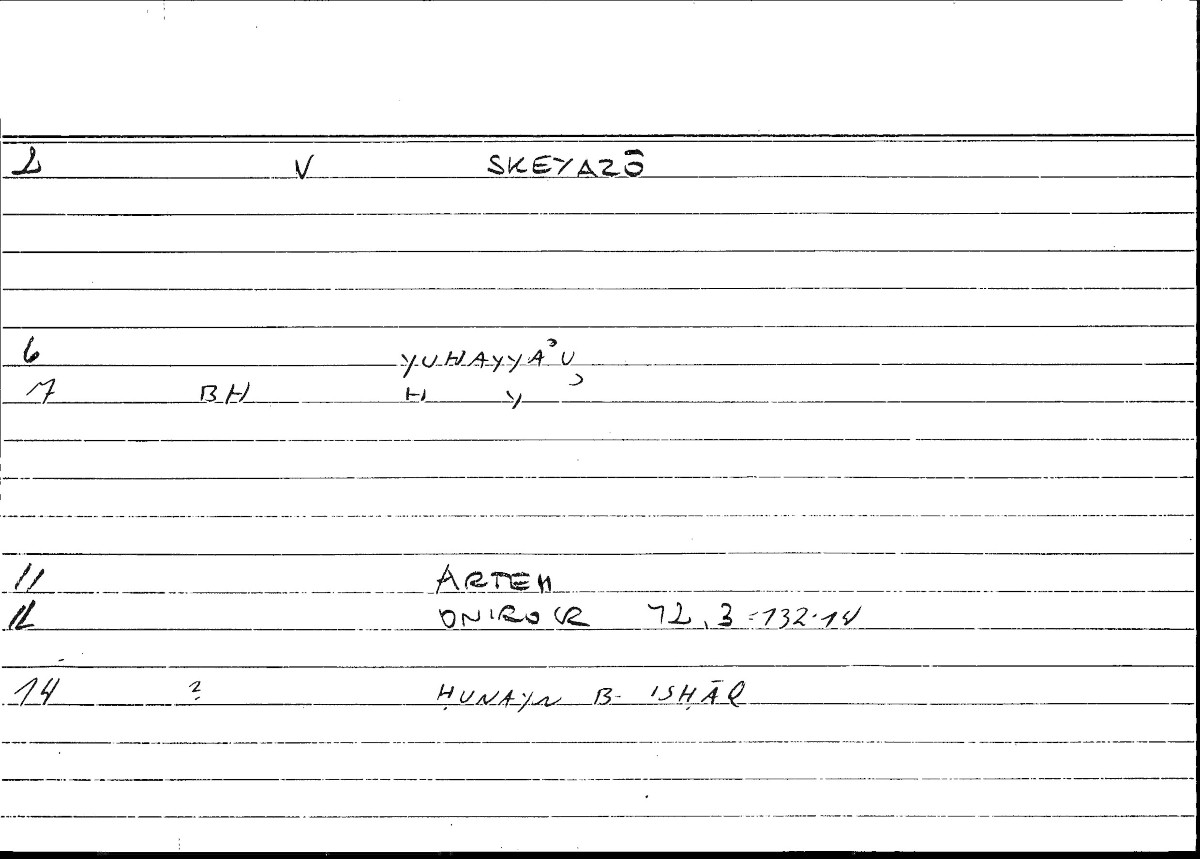 2 V SKEYAZŌ
6 YUHAYYAʾU
7 BH H Y ʾ
11 ARTEM
12 ONIROCR 72,3 = 132.14
14 ? ḤUNAYN B- ISḤĀQ